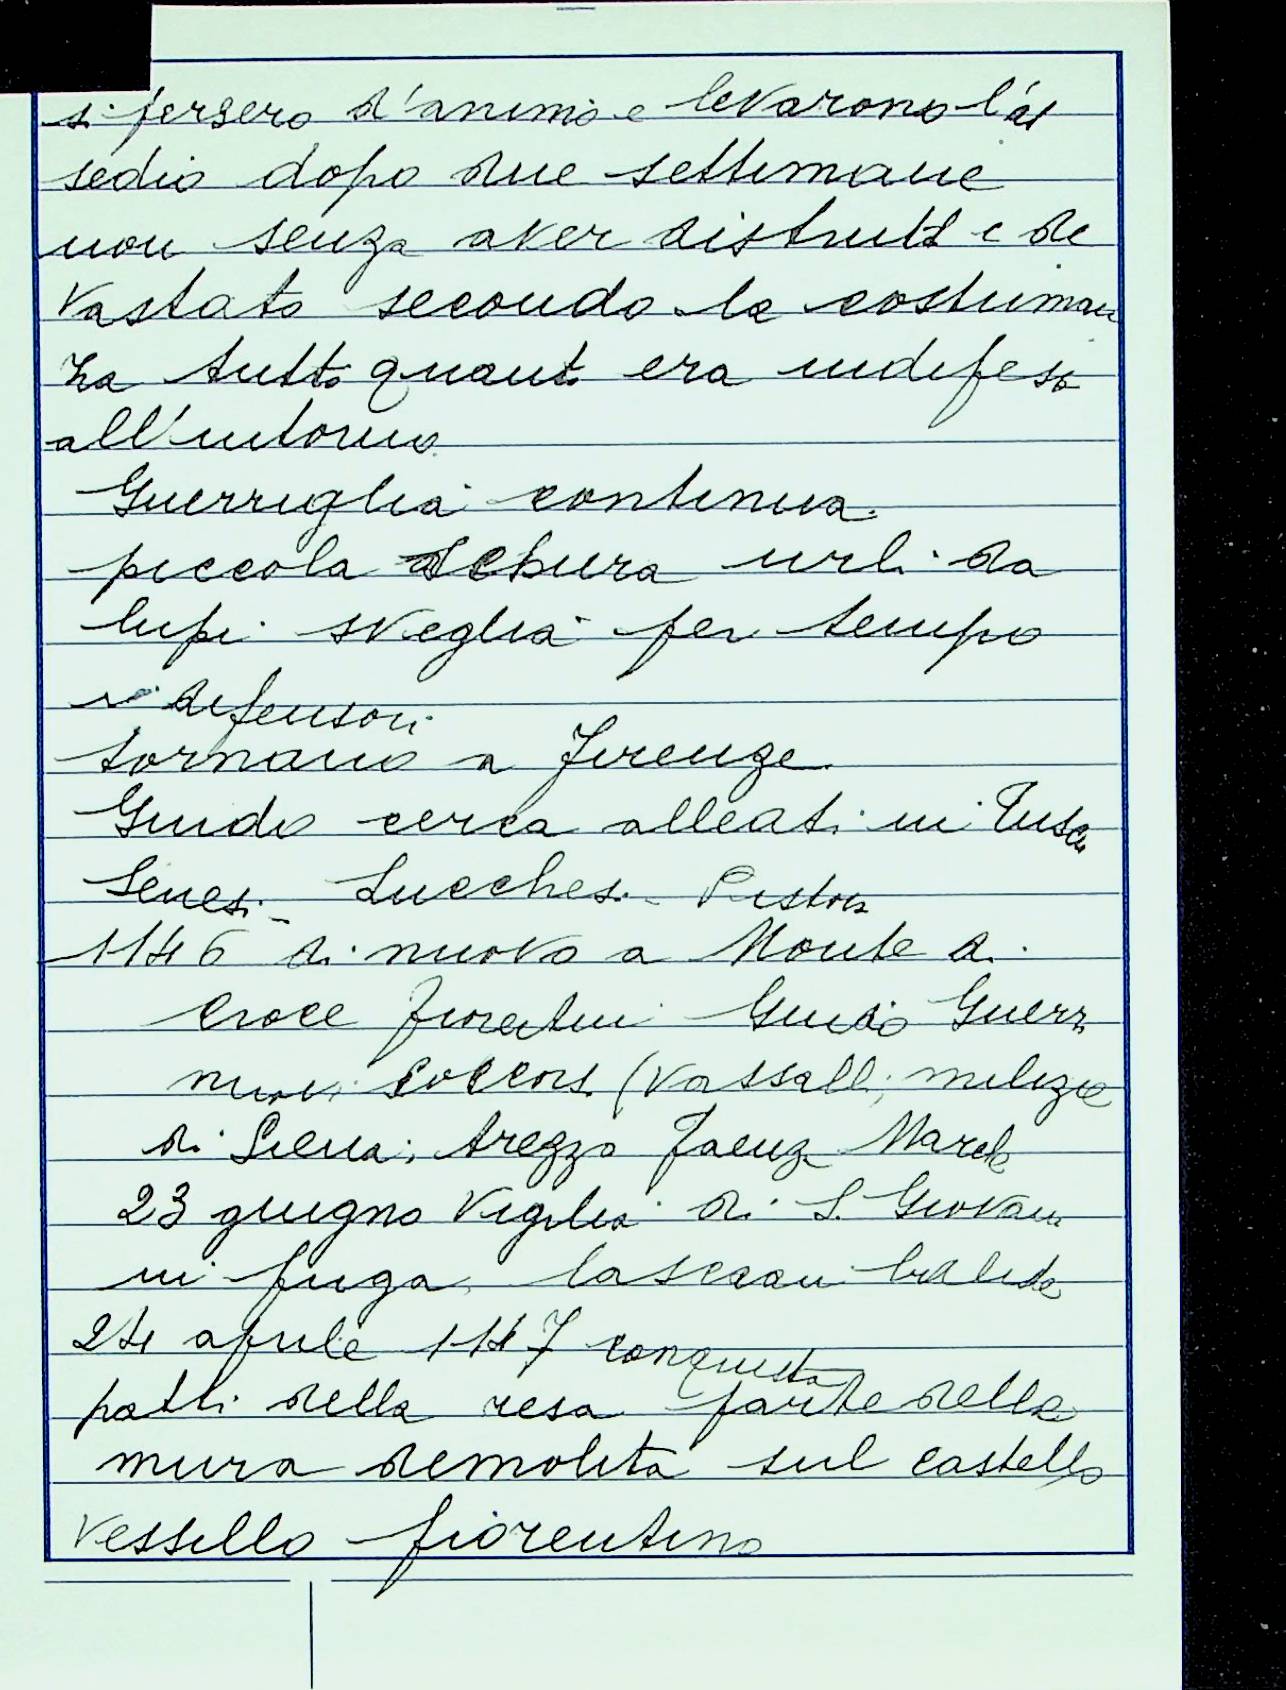 si persero d'animo e levarono l'as
sedio dopo due settimane
non senza aver distrutto e de
vastato secondo la costuman
za tutto quanto era indifeso
all'intorno
Guerriglia continua.
piccola urli da
lupi sveglia per tempo
i difensori
tornano a Firenze.
Guido cerca alleati in Tusc
Senesi - Lucchesi - Pistoia
1146 di nuovo a Monte di
Croce fiorentini Guido Guerra
nuovi soccorsi (vassalli, milizie
di Siena, Arezzo Faenza
23 giugno Vigilia di S. Giovanni
in fuga, lasciano
24 aprile 1147 conquista
patti della resa parte delle
mura demolita sul castello
vessillo fiorentino